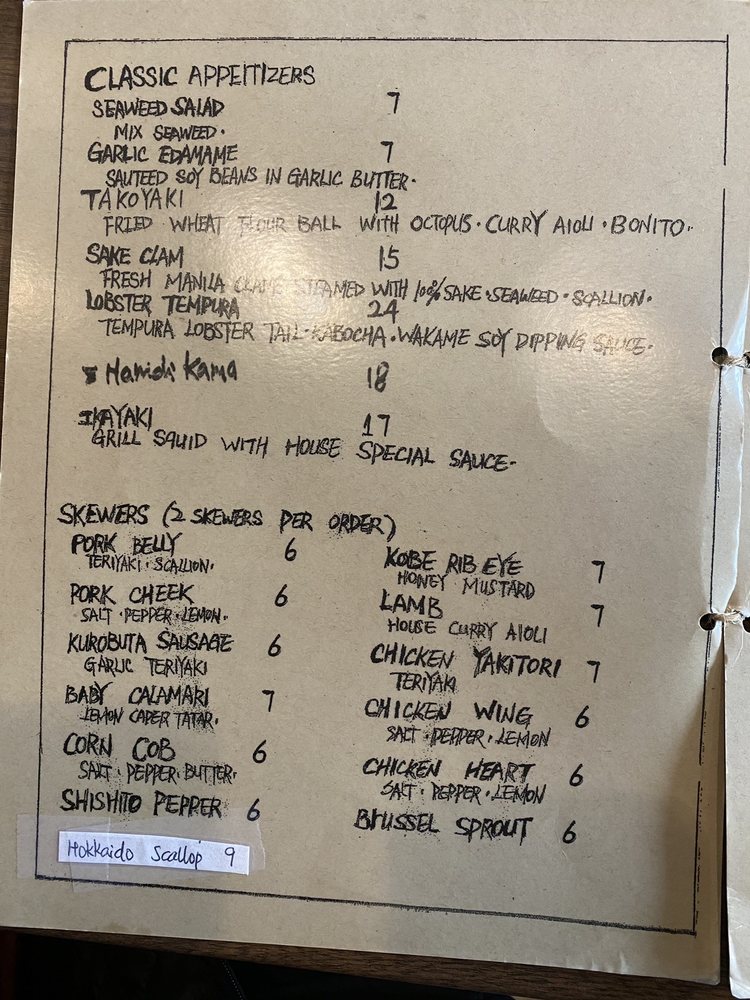 CLASSIC APPEITIZERS
SEAWEED SALAD 7
MIX SEAWEED.
GARLIC EDAMAME 7
SAUTEED SOY BEANS IN GARLIC BUTTER.
TAKOYAKI 12
FRIED WHEAT FLOUR BALL WITH OCTOPUS · CURRY AIOLI · BONITO.
SAKE CLAM 15
FRESH MANILA CLAMS STEAMED WITH 100% SAKE · SEAWEED · SCALLION.
LOBSTER TEMPURA 24
TEMPURA LOBSTER TAIL · KABOCHA · WAKAME SOY DIPPING SAUCE.
Kama 18
IKAYAKI 17
GRILL SQUID WITH HOUSE SPECIAL SAUCE.
SKEWERS (2 SKEWERS PER ORDER)
PORK BELLY 6
TERIYAKI · SCALLION.
PORK CHEEK 6
SALT · PEPPER · LEMON.
KUROBUTA SAUSAGE 6
GARLIC TERIYAKI
BABY CALAMARI 7
LEMON CAPER TATAR.
CORN COB 6
SALT · PEPPER · BUTTER.
SHISHITO PEPPER 6
Hokkaido Scallop 9
KOBE RIB EYE 7
HONEY MUSTARD
LAMB 7
HOUSE CURRY AIOLI
CHICKEN YAKITORI 7
TERIYAKI
CHICKEN WING 6
SALT · PEPPER · LEMON
CHICKEN HEART 6
SALT · PEPPER · LEMON
BRUSSEL SPROUT 6